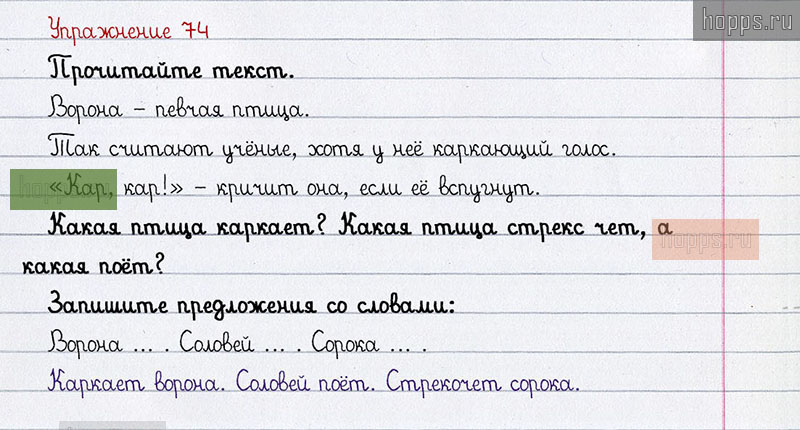 hopps.ru
Упражнение 74
Прочитайте текст.
Ворона – певчая птица.
Так считают учёные, хотя у неё каркающий голос.
«Кар, кар!» – кричит она, если её вспугнут.
Какая птица каркает? Какая птица стрекс чет, а
hopps.ru
какая поёт?
Запишите предложения со словами:
Ворона ... . Соловей ... . Сорока ... .
Каркает ворона. Соловей поёт. Стрекочет сорока.